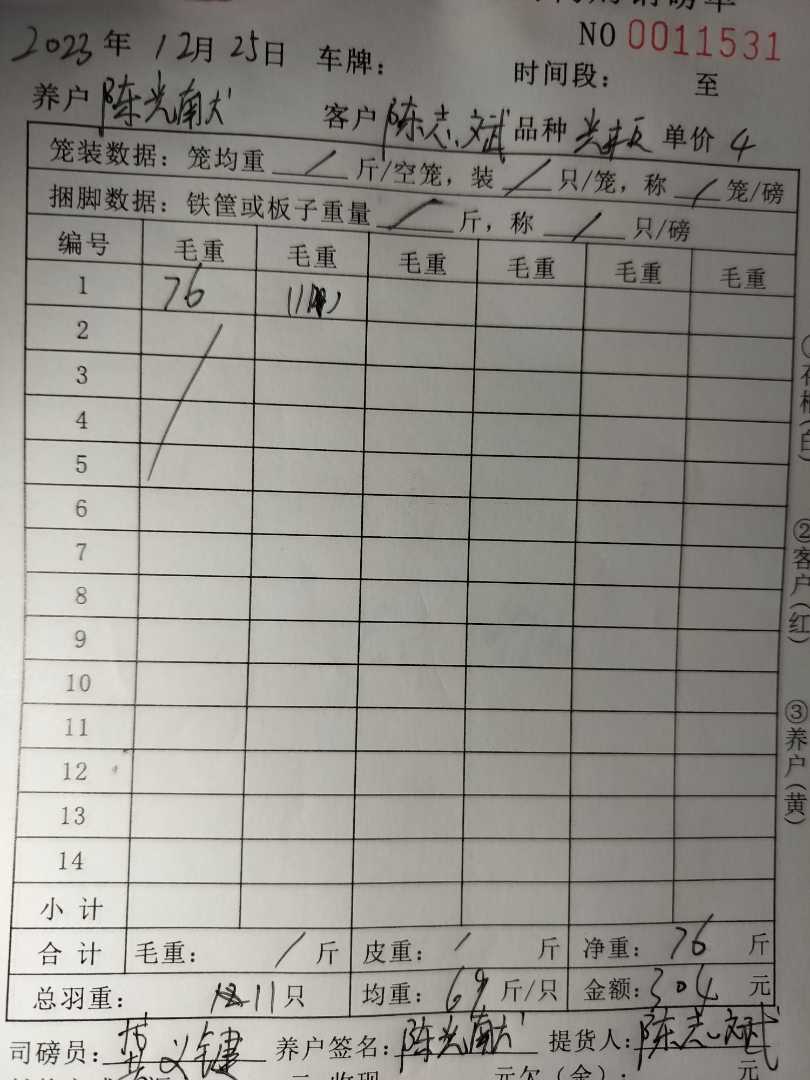 NO 0011531
2023年 12月 25日 车牌：
时间段： 至
养户 陈光南 客户 陈志斌 品种 单价 4
笼装数据：笼均重 / 斤/空笼，装 / 只/笼，称 / 笼/磅
捆脚数据：铁筐或板子重量 / 斤，称 / 只/磅
编号 毛重 毛重 毛重 毛重 毛重 毛重
1 76
2
3
4
5
6
7
8
9
10
11
12
13
14
小计
合计 毛重： / 斤 皮重： / 斤 净重： 76 斤
总羽重： 11只 均重： 69 斤/只 金额： 304 元
司磅员： 养户签名： 陈光南 提货人： 陈志斌
②客户(红)
③养户(黄)